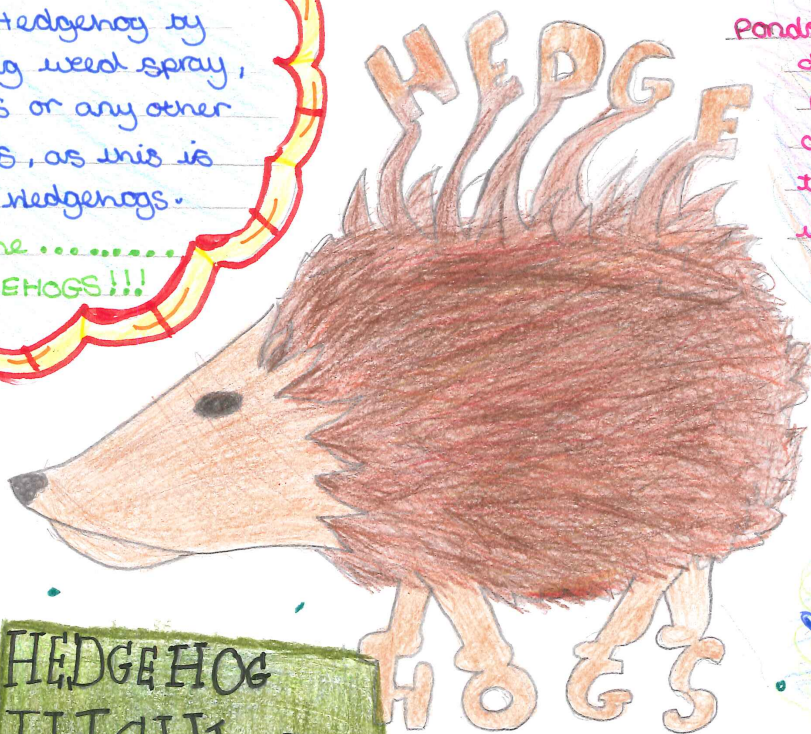 Hedgehog by
g weed spray,
s or any other
s, as this is
Hedgehogs.
EHOGS!!!
HEDGE
HOGS
HEDGEHOG